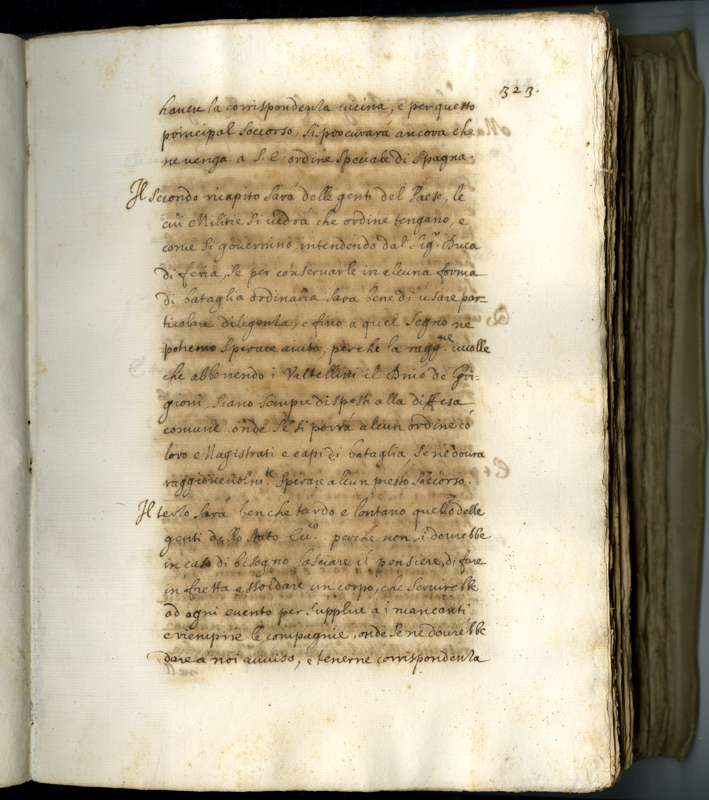 323.
havere la corrispondenza vicina, e per questo
principal soccorso, si procurarà ancora che
ne venga a S. E. ordine speciale di Spagna.
Il secondo ricapito sarà delle genti del Paese, le
cui Militie si vedrà che ordine tengano, e
come si governino, intendendo dal Sig.r Duca
di feria, se per conservarle in alcuna forma
di bataglia ordinaria sara bene di usare par-
ticolare diligenza, e fino a quel segno ne
potremo sperare aiuto, perche la ragg.ne vuolle
che abborrendo i Valtellini il Dnio de Gri-
gioni, siano sempre disposti alla diffesa
comune, onde se si porrà alcun ordine có
loro e Magistrati e capi di bataglia, se ne dovra
raggionevolm.te sperare alcun presto soccorso.
Il terzo sarà benche tardo e lontano quello delle
genti dello stato Ecc.co perche non si dourebbe
in caso di bisogno lasciare il pensiere, di fare
in fretta e assoldare un corpo, che servirebbe
ad ogni evento per supplire a i mancanti
e riempire le compagnie, onde se ne dourebbe
dare a noi avviso, e tenerne corrispondenza